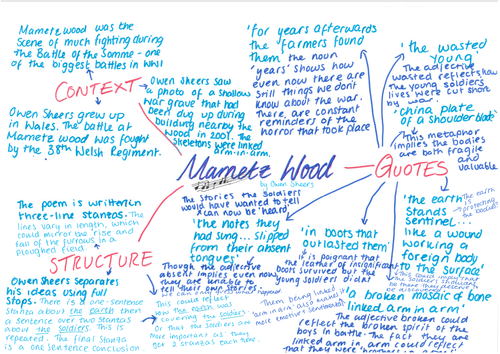 Mametz Wood
by Owen Sheers
CONTEXT
Mametz Wood was the
scene of much fighting during
the Battle of the Somme - one
of the biggest battles in WW1
Owen Sheers grew up
in Wales. The battle at
Mametz Wood was fought
by the 38th Welsh Regiment.
Owen Sheers saw
a photo of a shallow
war grave that had
been dug up during
building nearby the
wood in 2001. The
skeletons were linked
arm-in-arm.
QUOTES
'for years afterwards
the farmers found
them' the noun
'years' shows how
even now there are
still things we don't
know about the war.
There are constant
reminders of the
horror that took place
'the wasted
young'
The adjective
wasted reflects how
the young soldiers
lives were cut short
by war
'china plate
of a shoulder blade'
This metaphor
implies the bodies
are both fragile
and
valuable
'the earth
stands
sentinel...
like a wound
working a
foreign body
to the surface'
The earth
is
protecting
the bodies
'a broken mosaic of bone
linked arm in arm'
The adjective broken could
reflect the broken spirit of the
boys in battle. The fact they are
linked arm in arm could reflect
that they were
'in boots that
outlasted them'
It is poignant that
the leather of insignificant
boots survived but the
young soldiers didn't
Them being linked
arm in arm also makes
The stories the soldiers
would have wanted to tell
can now be 'heard'
'the notes they
had sung... slipped
from their absent
tongues'
Though the adjective
absent implies even now,
they are unable to
tell their own stories.
STRUCTURE
The poem is written in
three-line stanzas. The
lines vary in length, which
could mirror the rise and
fall of the furrows in a
ploughed field
Owen Sheers separates
his ideas using full
stops. There is a one-sentence
stanza about the earth then
a sentence over two stanzas
about the soldiers. This is
repeated. The final stanza
is a one sentence conclusion
This could reflect
how the earth was
covering the soldiers.
Or that the soldiers are
more important as they
get 2 stanzas each time.